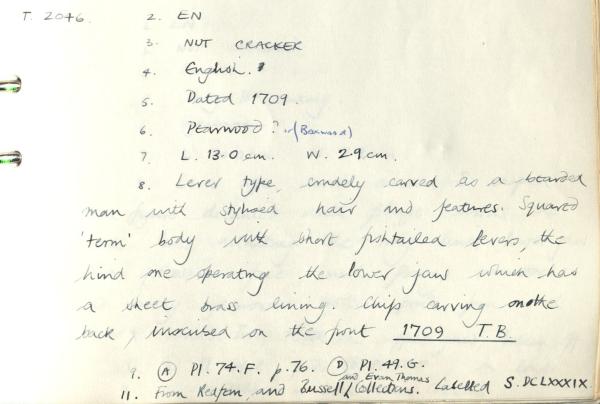 T. 2046. 2. EN
3. NUT CRACKER
4. English.
5. Dated 1709.
6. Pearwood? (Boxwood)
7. L. 13.0 cm. W. 2.9 cm.
8. Lever type, crudely carved as a bearded
man with stylised hair and features. Squared
'term' body with short fishtailed levers, the
hind one operating the lower jaw which has
a sheet brass lining. Chip carving on the
back, inscribed on the front 1709 T.B.
9. (A) Pl. 74. F. p. 76. (D) Pl. 49. G.
and Evan Thomas
11. From and Russell / Collections. Labelled S. DCLXXXIX.